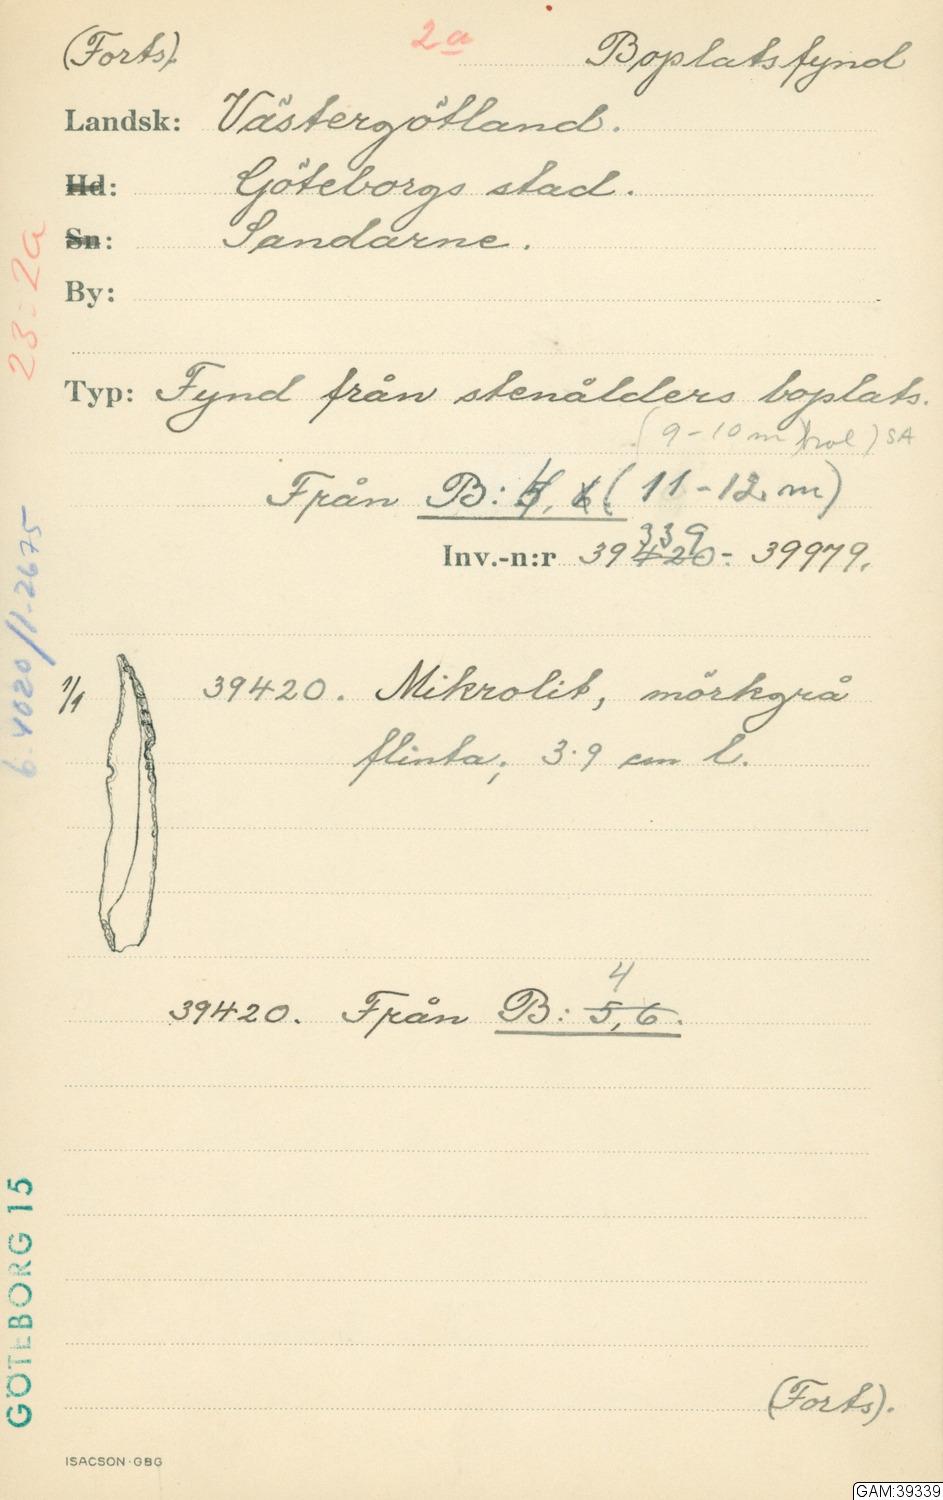 (Forts). 2a Boplatsfynd
Landsk: Västergötland.
Hd: Göteborgs stad.
Sn: Sandarne.
By:
Typ: Fynd från stenålders boplats.
(9-10 m) SA
Från B: 5, 6 (11-12 m)
339
Inv.-n:r 39420- 39979.
1/1 39420. Mikrolit, mörkgrå
flinta; 3.9 cm l.
4
39420. Från B: 5, 6.
(Forts).
ISACSON·GBG
GAM:39339
23:2a
6.4020/1-2675
GÖTEBORG 15